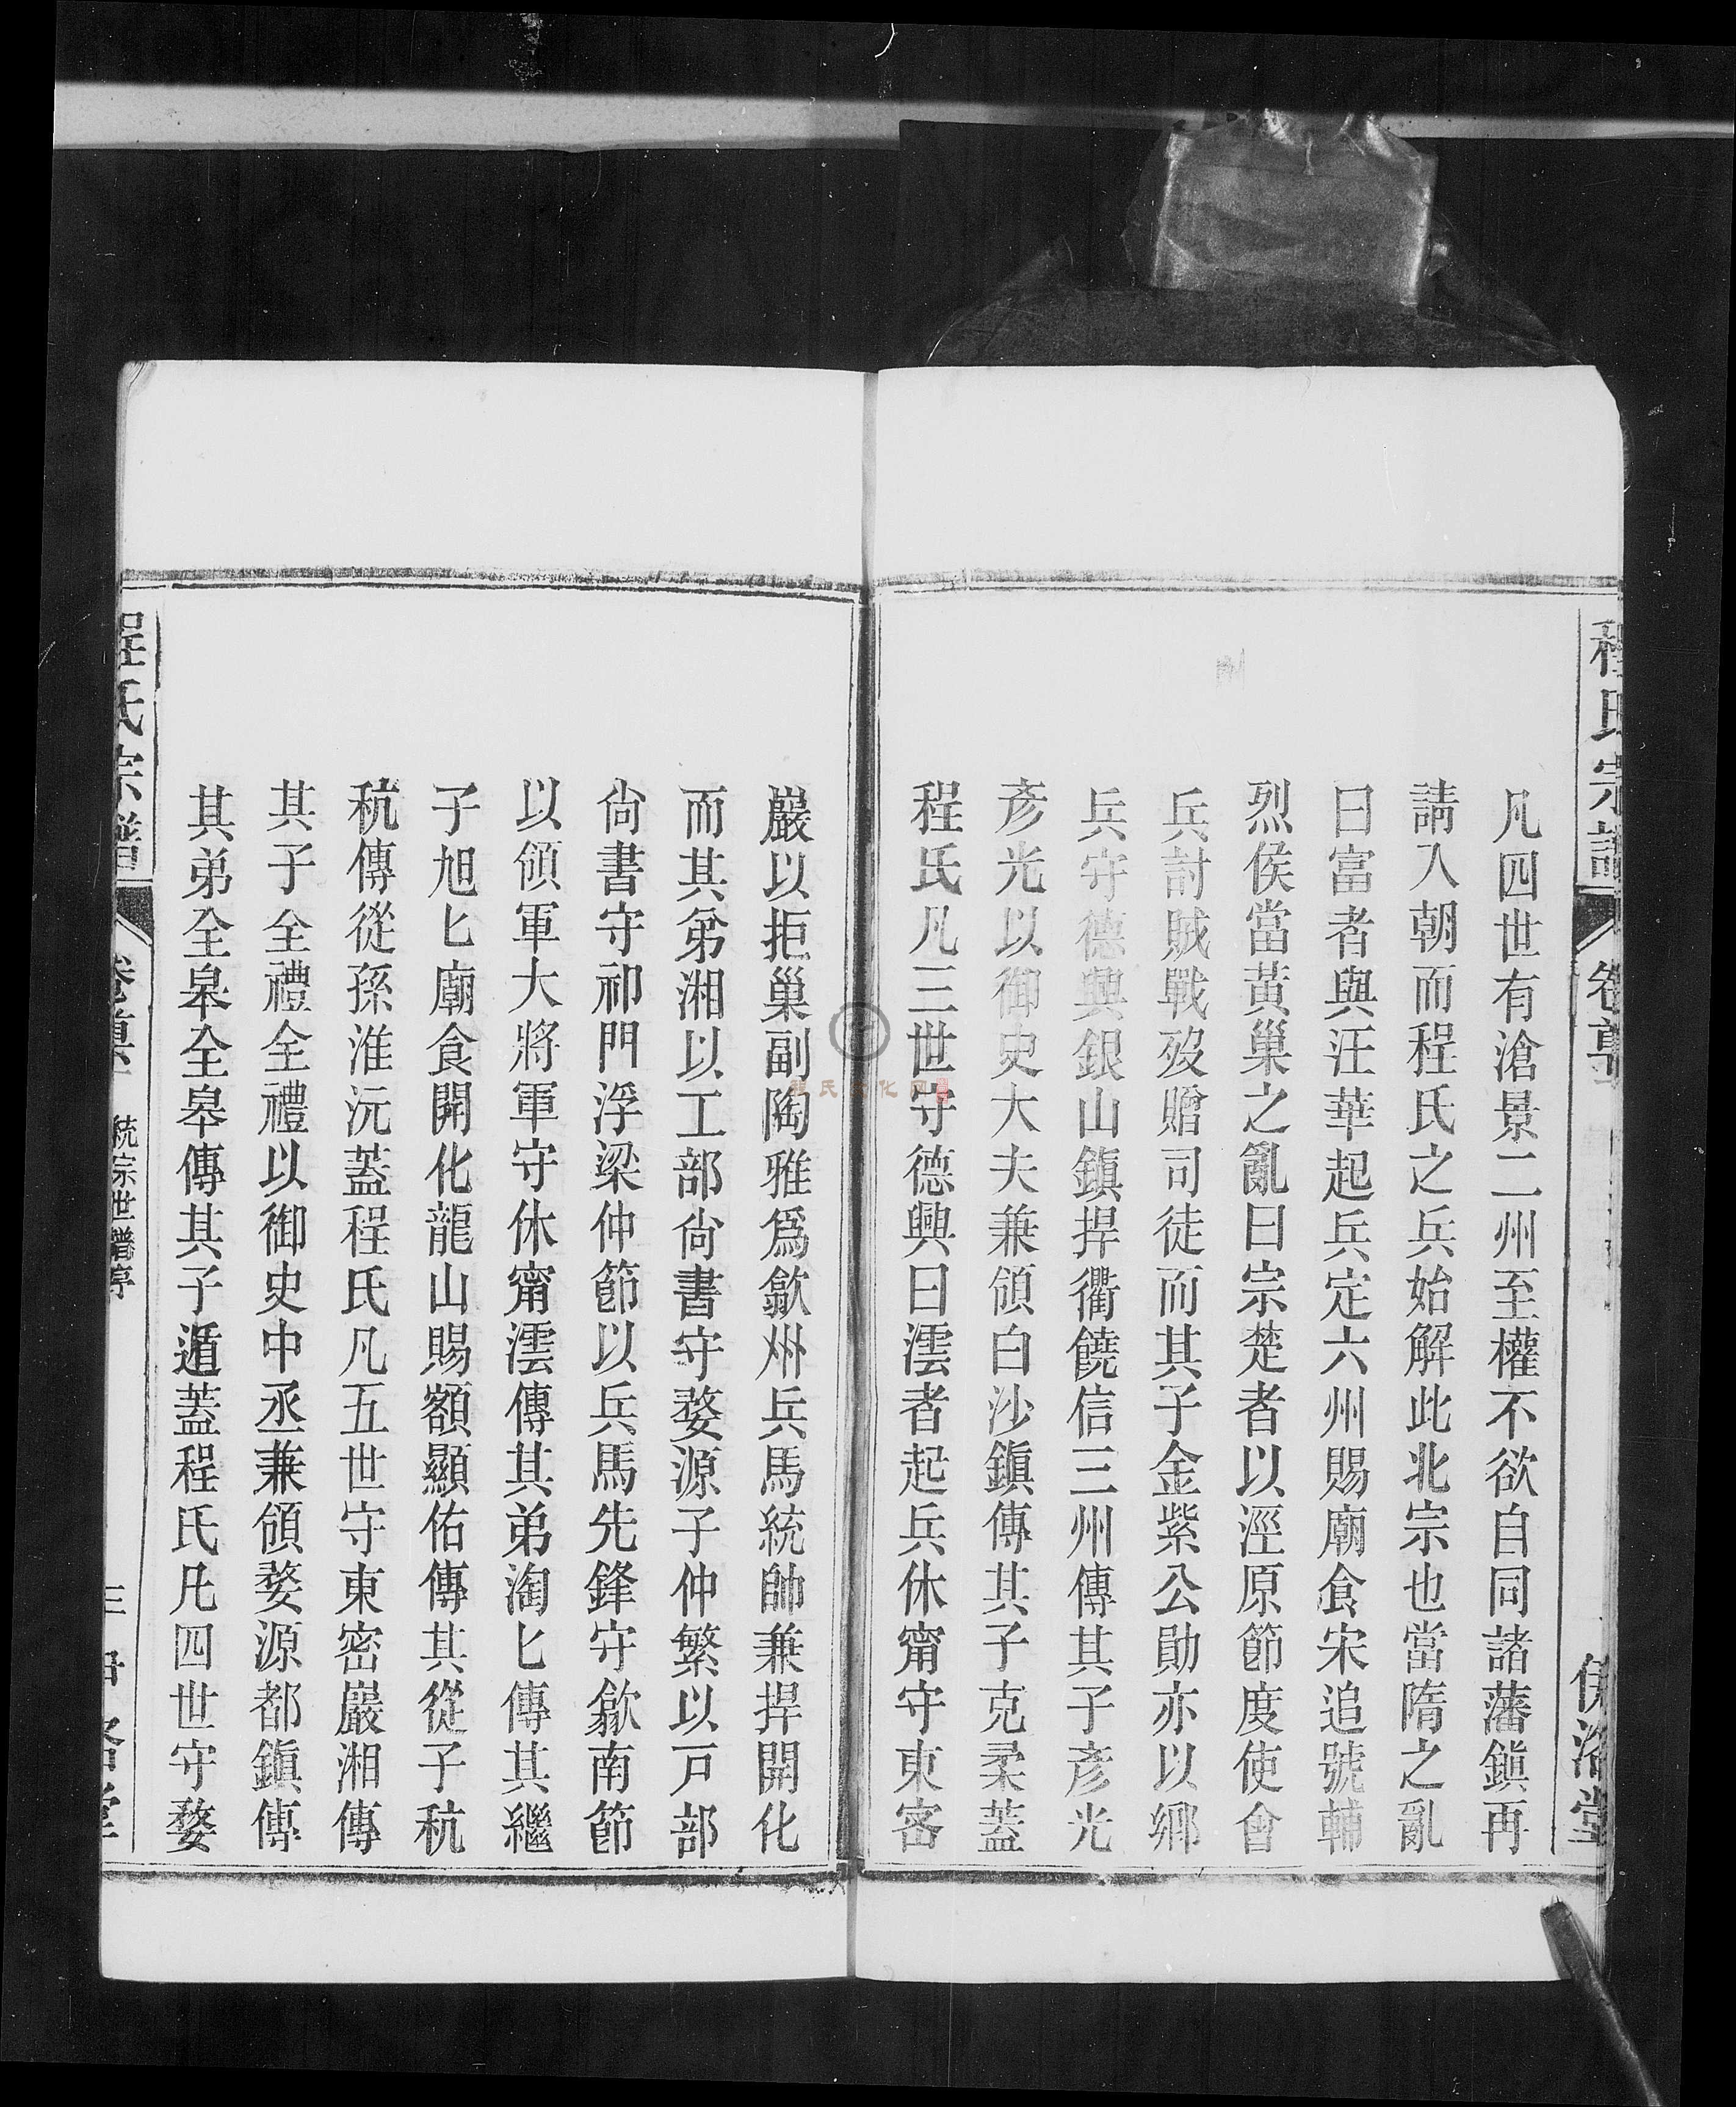 程氏宗譜
伊洛堂
凡四世有滄景二州至權不欲自同諸藩鎭再
請入朝而程氏之兵始解此北宗也當隋之亂
曰富者與汪華起兵定六州賜廟食宋追號輔
烈侯當黃巢之亂曰宗楚者以涇原節度使會
兵討賊戰歿贈司徒而其子金紫公勛亦以鄉
兵守德興銀山鎭捍衢饒信三州傳其子彥光
彥光以御史大夫兼領白沙鎭傳其子克柔蓋
程氏凡三世守德興曰澐者起兵休甯守東密
巖以拒巢副陶雅爲歙州兵馬統帥兼捍開化
而其弟湘以工部尙書守婺源子仲繁以戸部
尙書守祁門浮梁仲節以兵馬先鋒守歙南節
以領軍大將軍守休甯澐傳其弟淘匕傳其繼
子旭匕廟食開化龍山賜額顯佑傳其從子秔
秔傳從孫淮沅蓋程氏凡五世守東密巖湘傳
其子全禮全禮以御史中丞兼領婺源都鎭傳
其弟全皋全皋傳其子遁蓋程氏凡四世守婺
程氏宗譜
統宗世譜序
三